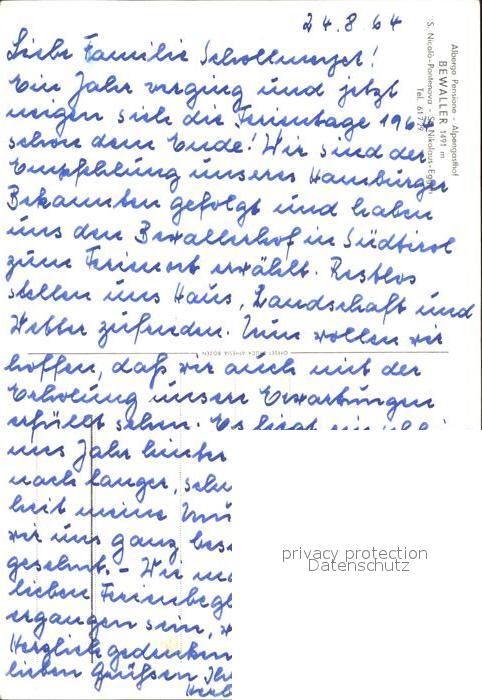 24.8.64
Liebe Familie Schollmeyer!
Ein Jahr verging und jetzt
neigen sich die Ferientage 1964
schon dem Ende! Wir sind der
Empfehlung unserer Hamburger
Bekannten gefolgt und haben
uns den Bewallerhof in Südtirol
zum Ferienort erwählt. Restlos
stellen uns Haus, Landschaft und
Wetter zufrieden. Nun wollen wir
hoffen, daß wir auch mit der
Erholung unsere Erwartungen
erfüllt sehen. Es liegt ein
uns Jahr hinter
nach langer, schw
heit meine Mu
wir uns ganz bes
gesehnt. - Wie m
lieben Ferienbeg
ergangen sein, w
Herzlich gedenken
lieben Grüßen Ih
Herb
Albergo Pensione - Alpengasthof
BEWALLER 1491 m
S. Nicolò-Pontenova - St. Nikolaus-Eggen
Tel. 61729
OFFSET DRUCK ATHESIA BOZEN
privacy protection
Datenschutz